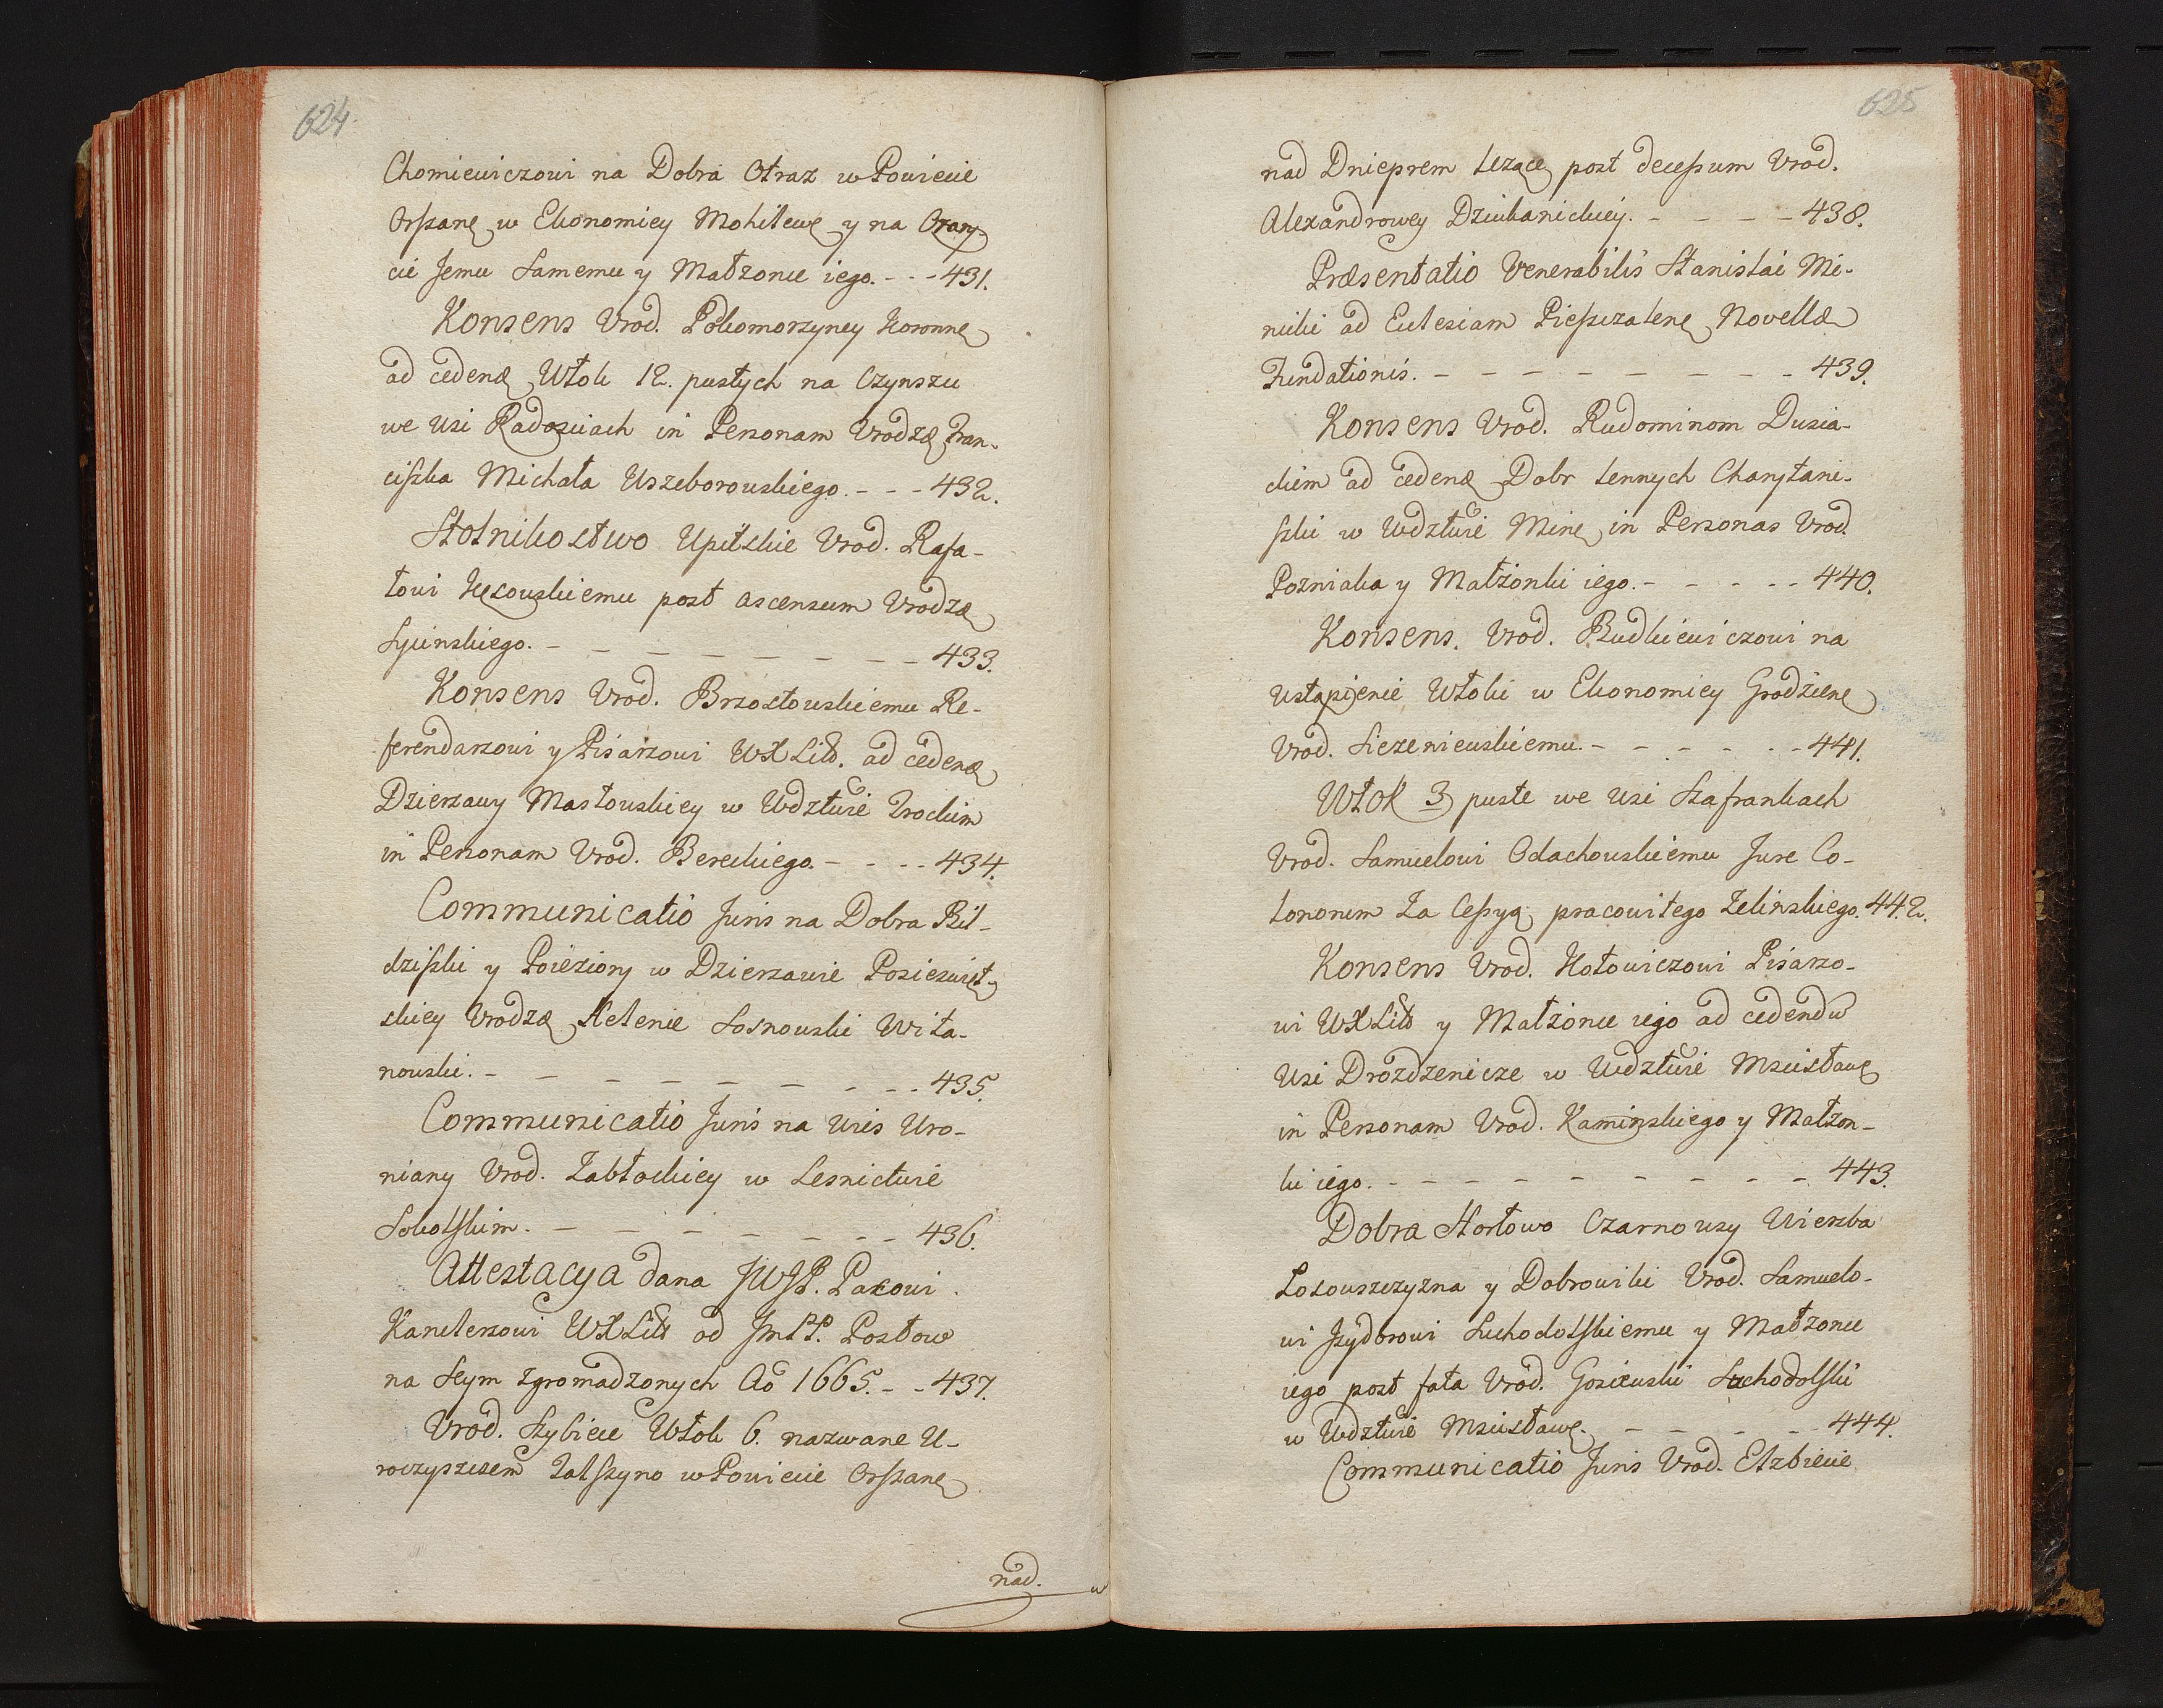 624.
Chomiewiczowi na Dobra Otraz w Powiecie
Orszanę w Ekonomiey Mohilewę y na Orany-
cie Jemu Samemu y Małzonce iego. - - - 431.
Konsens Vrod. Podkomorzyney Koronnę
ad cedenꝺ Włok 12. pustych na Czynszu
we wsi Radosciach in Personam Vrodzꝺ Fran-
ciszka Michała Uszeborowskiego. - - - 432.
Stolnikostwo Upitskie Vrod. Rafa-
łowi post ascensum Vrodzꝺ
Syinskiego. - - - - - - - - 433.
Konsens Vrod. Brzostowskiemu Re-
ferendarzowi y Pisarzowi WXLitt. ad cedenꝺ
Dzierzawy Masłowskiey w Wdztwie Trockim
in Personam Vrod. Bereckiego. - - - - 434.
Communicatio Juris na Dobra Bil-
dziszki y Poieziory w Dzierzawie Posieswięt-
skiey Vrodzꝺ Helenie Sosnowski Wita-
nowski. - - - - - - - - 435.
Communicatio Juris na Wies Wro-
niany Vrod. Zabłockiey w Lesnictwie
Sokolskim. - - - - - - - 436.
Attestacya dana JWJP. Pacowi
Kanclerzowi WXLitt od JmPP. Posłow
na Seym zgromadzonych Ao 1665. - - 437.
Vrod. Szybiece Włok 6. nazwane U-
roczyszczem Zalszyno w Powiecie Orszanę
nad.
625
nad Dnieprem lezącę post decessum Vrod.
Alexandrowey Dziubanickiey. - - - - 438.
Præsentatio Venerabilis Stanislai Mi-
nicki ad Eclesiam Piesszczalenę Novellæ
Fundationis. - - - - - - - - 439.
Konsens Vrod. Rudominom Dusia-
ckim ad cedenꝺ Dobr lennych Charytani-
szki w Wdztwie Minę in Personas Vrod.
Pozniaka y Małżonki iego. - - - - - 440.
Konsens. Vrod. Rudkiewiczowi na
ustąpienie Włoki w Ekonomiey Grodźienę
Vrod. Siezeniewskiemu. - - - - - - 441.
Włok 3 puste we wsi Szafrankach
Vrod. Samuelowi Odachowskiemu Jure Co-
lonorum Za Cessyą pracowitego Zelinskiego. 442.
Konsens Vrod. Kotowiczowi Pisarzo-
wi WXLitt y Małżonce iego ad cedendꝺ
Wsi Drozdzenicze w Wdztwie Mscisławę
in Personam Vrod. Kaminskiego y Małzon-
ki iego. - - - - - - - - - 443.
Dobra Horłowo Czarnousy Wierzba
Losowszczyzna y Dobrowilki Vrod. Samuelo-
wi Jzydorowi Suchodolskiemu y Małzonce
iego post fata Vrod. Gosiewski Suchodolski
w Wdztwie Mscisławę. - - - - 444.
Communicatio Juris Vrod. Elzbiecie